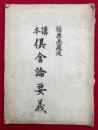 福原亮嚴述
講本
倶舎論要義